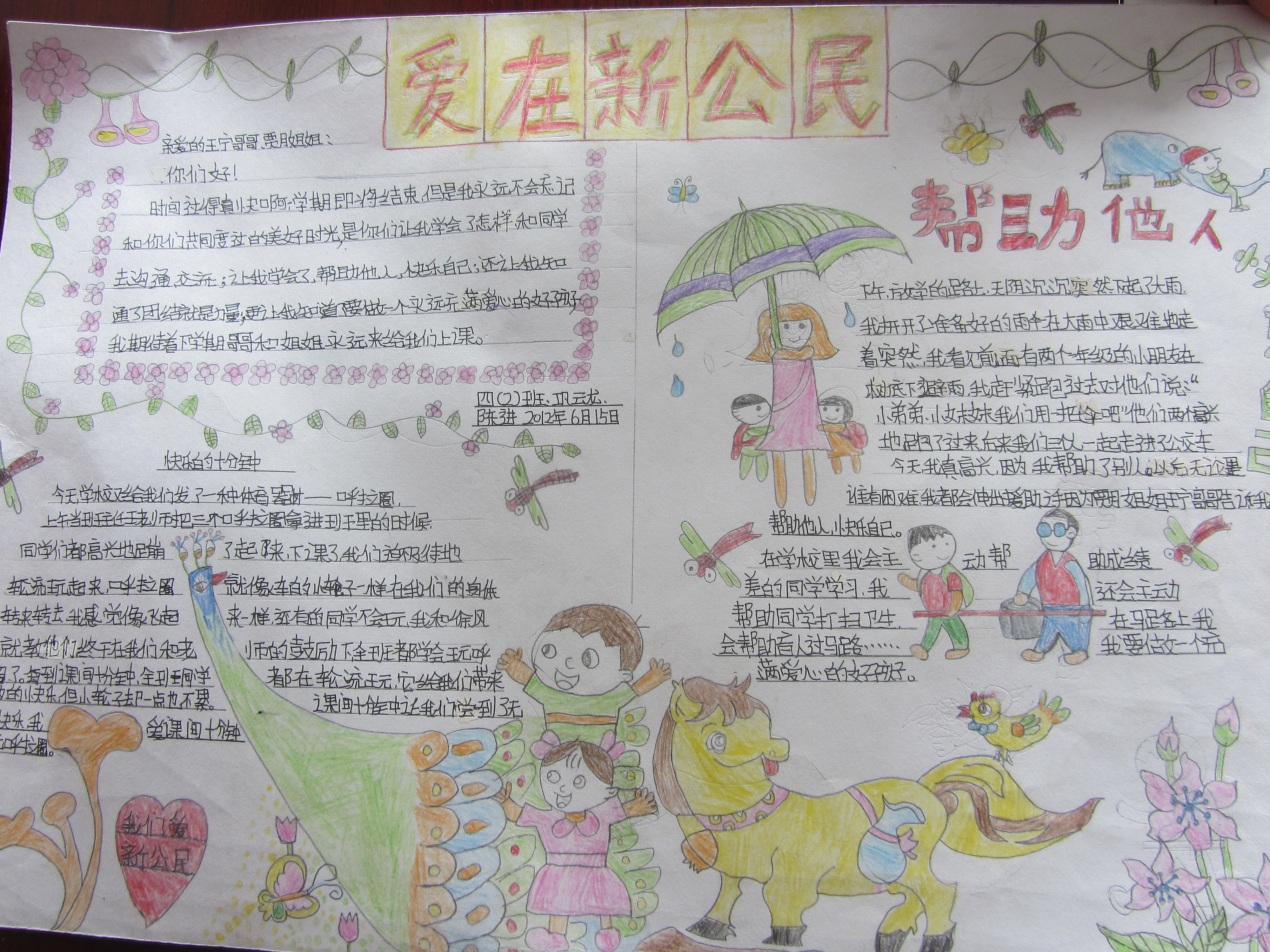 爱在新公民
亲爱的王宁哥哥,栗月姐姐:
你们好!
时间过得真快啊,学期即将结束,但是我永远不会忘记
和你们共同度过的美好时光,是你们让我学会了怎样和同学
去沟通、交流;让我学会了,帮助他人,快乐自己;还让我知
道了团结就是力量;更让我知道要做一个永远充满爱心的好孩子
我期待着下学期哥哥和姐姐永远来给我们上课。
四(2)班
陈进 2012年6月15日
快乐的十分钟
今天学校又给我们发了一种体育器材——呼拉圈,
上午当班主任老师把三个呼拉圈拿进班里的时候
同学们都高兴地
了起来,下课了我们迫不及待地
轮流玩起来,呼拉圈
就像车的小轮子一样在我们的身体
转来转去,我感觉像飞起
来一样,还有的同学不会玩,我和徐风
就教他们,终于在我们和老
师的鼓励下全班都学会玩呼
了,每到课间十分钟,全班同学
都在轮流玩,它给我们带来
的快乐,但小轮子却一点也不累。
课间十分钟让我们尝到了无
快乐,我
爱课间十分钟
呼拉圈。
我们爱
新公民
帮助他人
下午,放学的路上,天阴沉沉突然下起了大雨,
我打开了准备好的雨伞在大雨中艰难地走
着突然,我看见前面有两个年级的小朋友在
树底下避雨,我赶紧跑过去对他们说:“
小弟弟、小妹妹我们用一把伞吧”他们两高兴
地跑了过来后来我们三人一起走进了公交车
今天我真高兴,因为我帮助了别人。以后无论是
谁有困难我都会伸出援助之手因为栗月姐姐王宁哥哥告诉我
帮助他人,快乐自己。
在学校里,我会主动帮助成绩
差的同学学习,我还会主动
帮助同学打扫卫生,在马路上我
会帮助盲人过马路……我要做一个充
满爱心的好孩子。